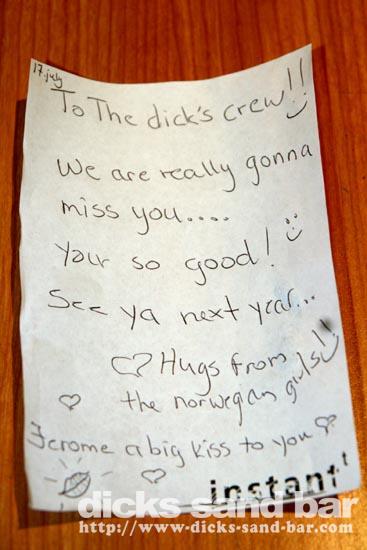 17. july
To The dick's crew!!
We are really gonna
miss you....
Your so good!
See ya next year...
Hugs from
the norwegian girls!!
Jerome a big kiss to you
instant
dicks sand bar
http://www.dicks-sand-bar.com